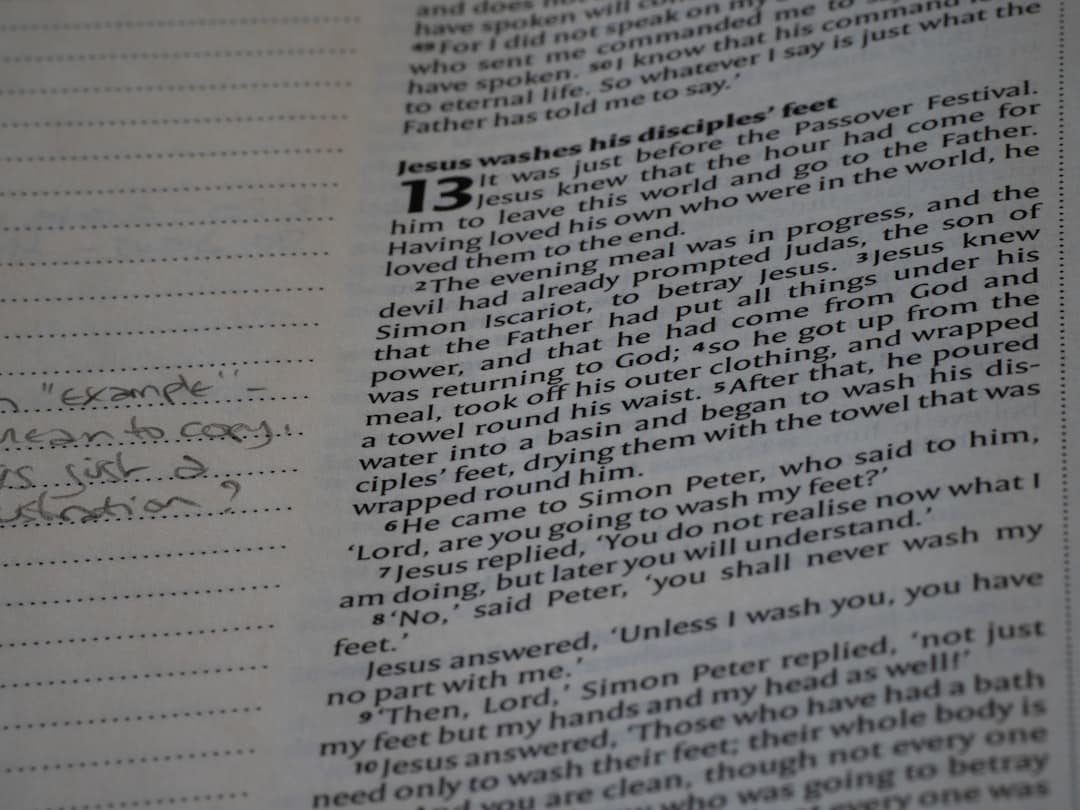 and does
have spoken will
49 For I did not speak on my
who sent me commanded me to
have spoken. 50 I know that his command
to eternal life. So whatever I say is just what the
Father has told me to say.’
Jesus washes his disciples’ feet
13 It was just before the Passover Festival.
Jesus knew that the hour had come for
him to leave this world and go to the Father.
Having loved his own who were in the world, he
loved them to the end.
2 The evening meal was in progress, and the
devil had already prompted Judas, the son of
Simon Iscariot, to betray Jesus. 3 Jesus knew
that the Father had put all things under his
power, and that he had come from God and
was returning to God; 4 so he got up from the
meal, took off his outer clothing, and wrapped
a towel round his waist. 5 After that, he poured
water into a basin and began to wash his dis-
ciples’ feet, drying them with the towel that was
wrapped round him.
6 He came to Simon Peter, who said to him,
‘Lord, are you going to wash my feet?’
7 Jesus replied, ‘You do not realise now what I
am doing, but later you will understand.’
8 ‘No,’ said Peter, ‘you shall never wash my
feet.’
Jesus answered, ‘Unless I wash you, you have
no part with me.’
9 ‘Then, Lord,’ Simon Peter replied, ‘not just
my feet but my hands and my head as well!’
10 Jesus answered, ‘Those who have had a bath
need only to wash their feet; their whole body is
you are clean, though not every one
who was going to betray
every one was
"example" -
mean to copy.
is just a
ustration?